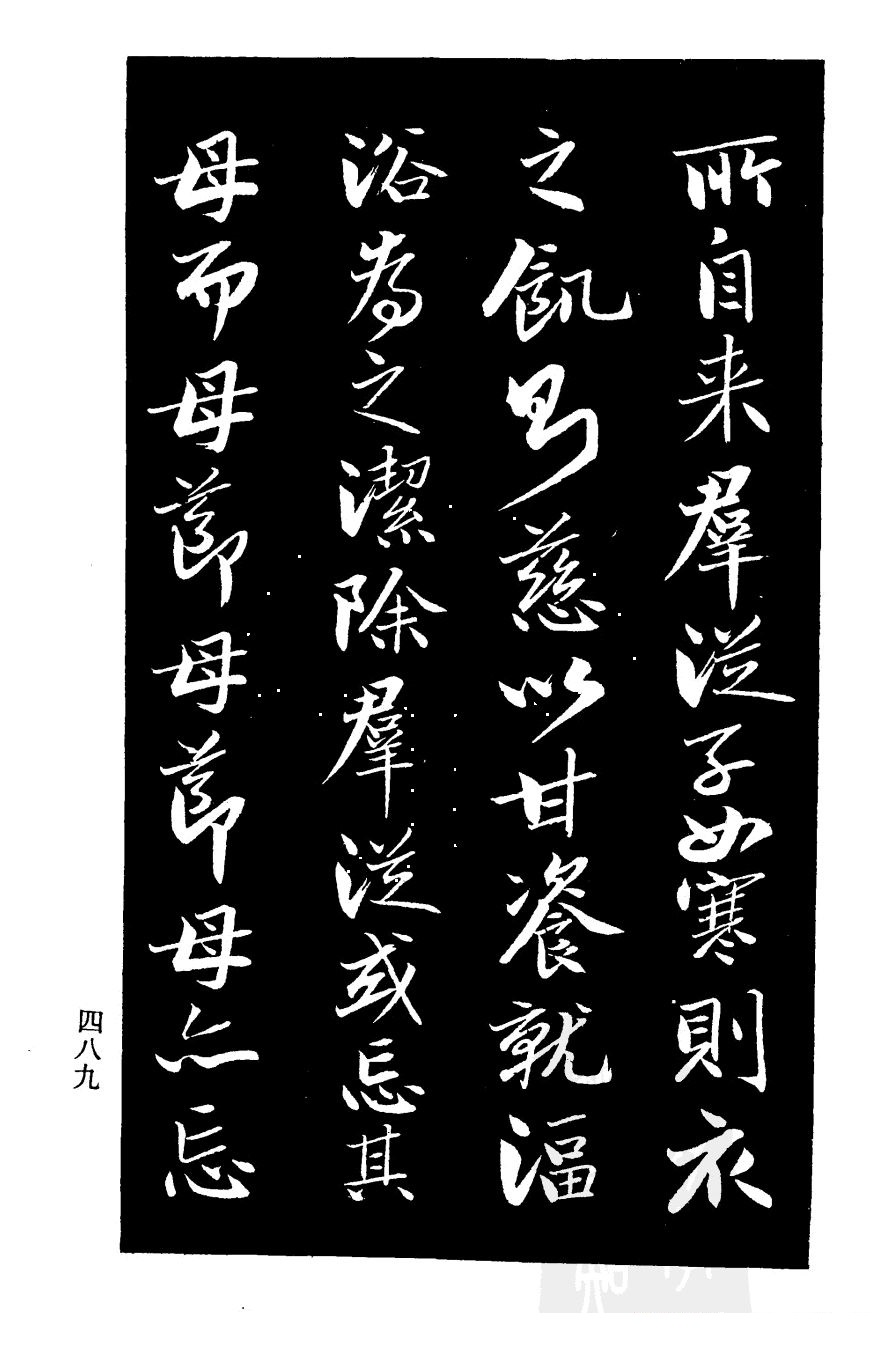 所自来羣從子女寒則衣
之飢則慈以甘餈就湢
浴為之潔除羣從或忘其
母而母節母母節母亦忘
四八九